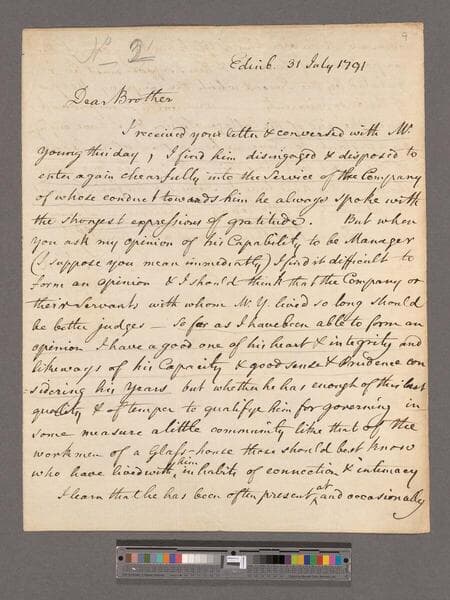 No 2
9
Edinb. 31 July 1791
Dear Brother
I received your letter & conversed with Mr.
Young this day, I find him disingaged & disposed to
enter again chearfully into the Service of the Company
of whose conduct towards him he always spoke with
the strongest expressions of gratitude. But when
you ask my opinion of his Capability to be Manager
(I suppose you mean immediately) I find it difficult to
form an opinion & I should think that the Company or
their Servants with whom Mr. Y. lived so long should
be better judges — So far as I have been able to form an
opinion I have a good one of his heart & integrity and
likeways of his Capacity & good sense & Prudence con
sidering his Years but whether he has enough of this last
quality & of temper to qualifye him for governing in
some measure a little community like that of the
workmen of a Glass-house those should best know
who have lived with him in habits of connection & intimacy
I learn that he has been often present at and occasionally